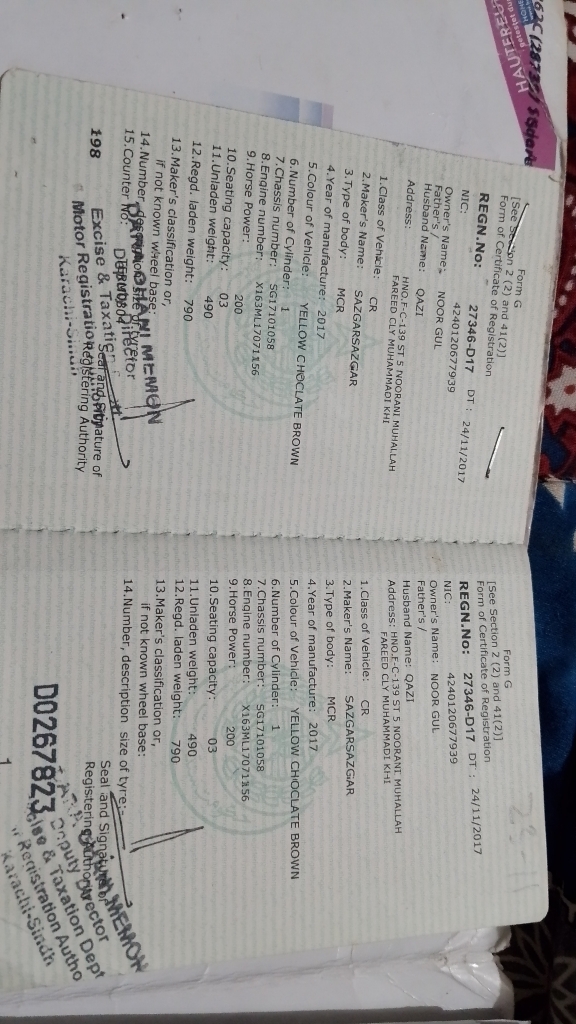 HAUTEREU
Form G
[See Section 2 (2) and 41(2)]
Form of Certificate of Registration
REGN.No: 27346-D17 DT : 24/11/2017
NIC: 4240120677939
Owner's Name: NOOR GUL
Father's /
Husband Name: QAZI
Address: HNO.F C-139 ST 5 NOORANI MUHALLAH
FAREED CLY MUHAMMADI KHI
1.Class of Vehicle: CR
2.Maker's Name: SAZGARSAZGAR
3.Type of body: MCR
4.Year of manufacture: 2017
5.Colour of Vehicle: YELLOW CHOCLATE BROWN
6.Number of Cylinder: 1
7.Chassis number: SG17101058
8.Engine number: X163ML17071156
9.Horse Power: 200
10.Seating capacity: 03
11.Unladen weight: 490
12.Regd. laden weight: 790
13.Maker's classification or,
if not known wheel base:
14.Number,
15.Counter No:
GHANI MEMON
Director
198 Excise & Taxation
Seal and Signature of
Motor Registering Authority
Karachi-Sindh
Form G
[See Section 2 (2) and 41(2)]
Form of Certificate of Registration
REGN.No: 27346-D17 DT : 24/11/2017
NIC: 4240120677939
Owner's Name: NOOR GUL
Father's /
Husband Name: QAZI
Address: HNO.F C-139 ST 5 NOORANI MUHALLAH
FAREED CLY MUHAMMADI KHI
1.Class of Vehicle: CR
2.Maker's Name: SAZGARSAZGAR
3.Type of body: MCR
4.Year of manufacture: 2017
5.Colour of Vehicle: YELLOW CHOCLATE BROWN
6.Number of Cylinder: 1
7.Chassis number: SG17101058
8.Engine number: X163ML17071156
9.Horse Power: 200
10.Seating capacity: 03
11.Unladen weight: 490
12.Regd. laden weight: 790
13.Maker's classification or,
if not known wheel base:
14.Number, description size of tyre:-
Seal and Signature of
Registering Authority
GHANI MEMON
Deputy Director
Excise & Taxation Dept
Registration Autho
Karachi-Sindh
D0267823
1